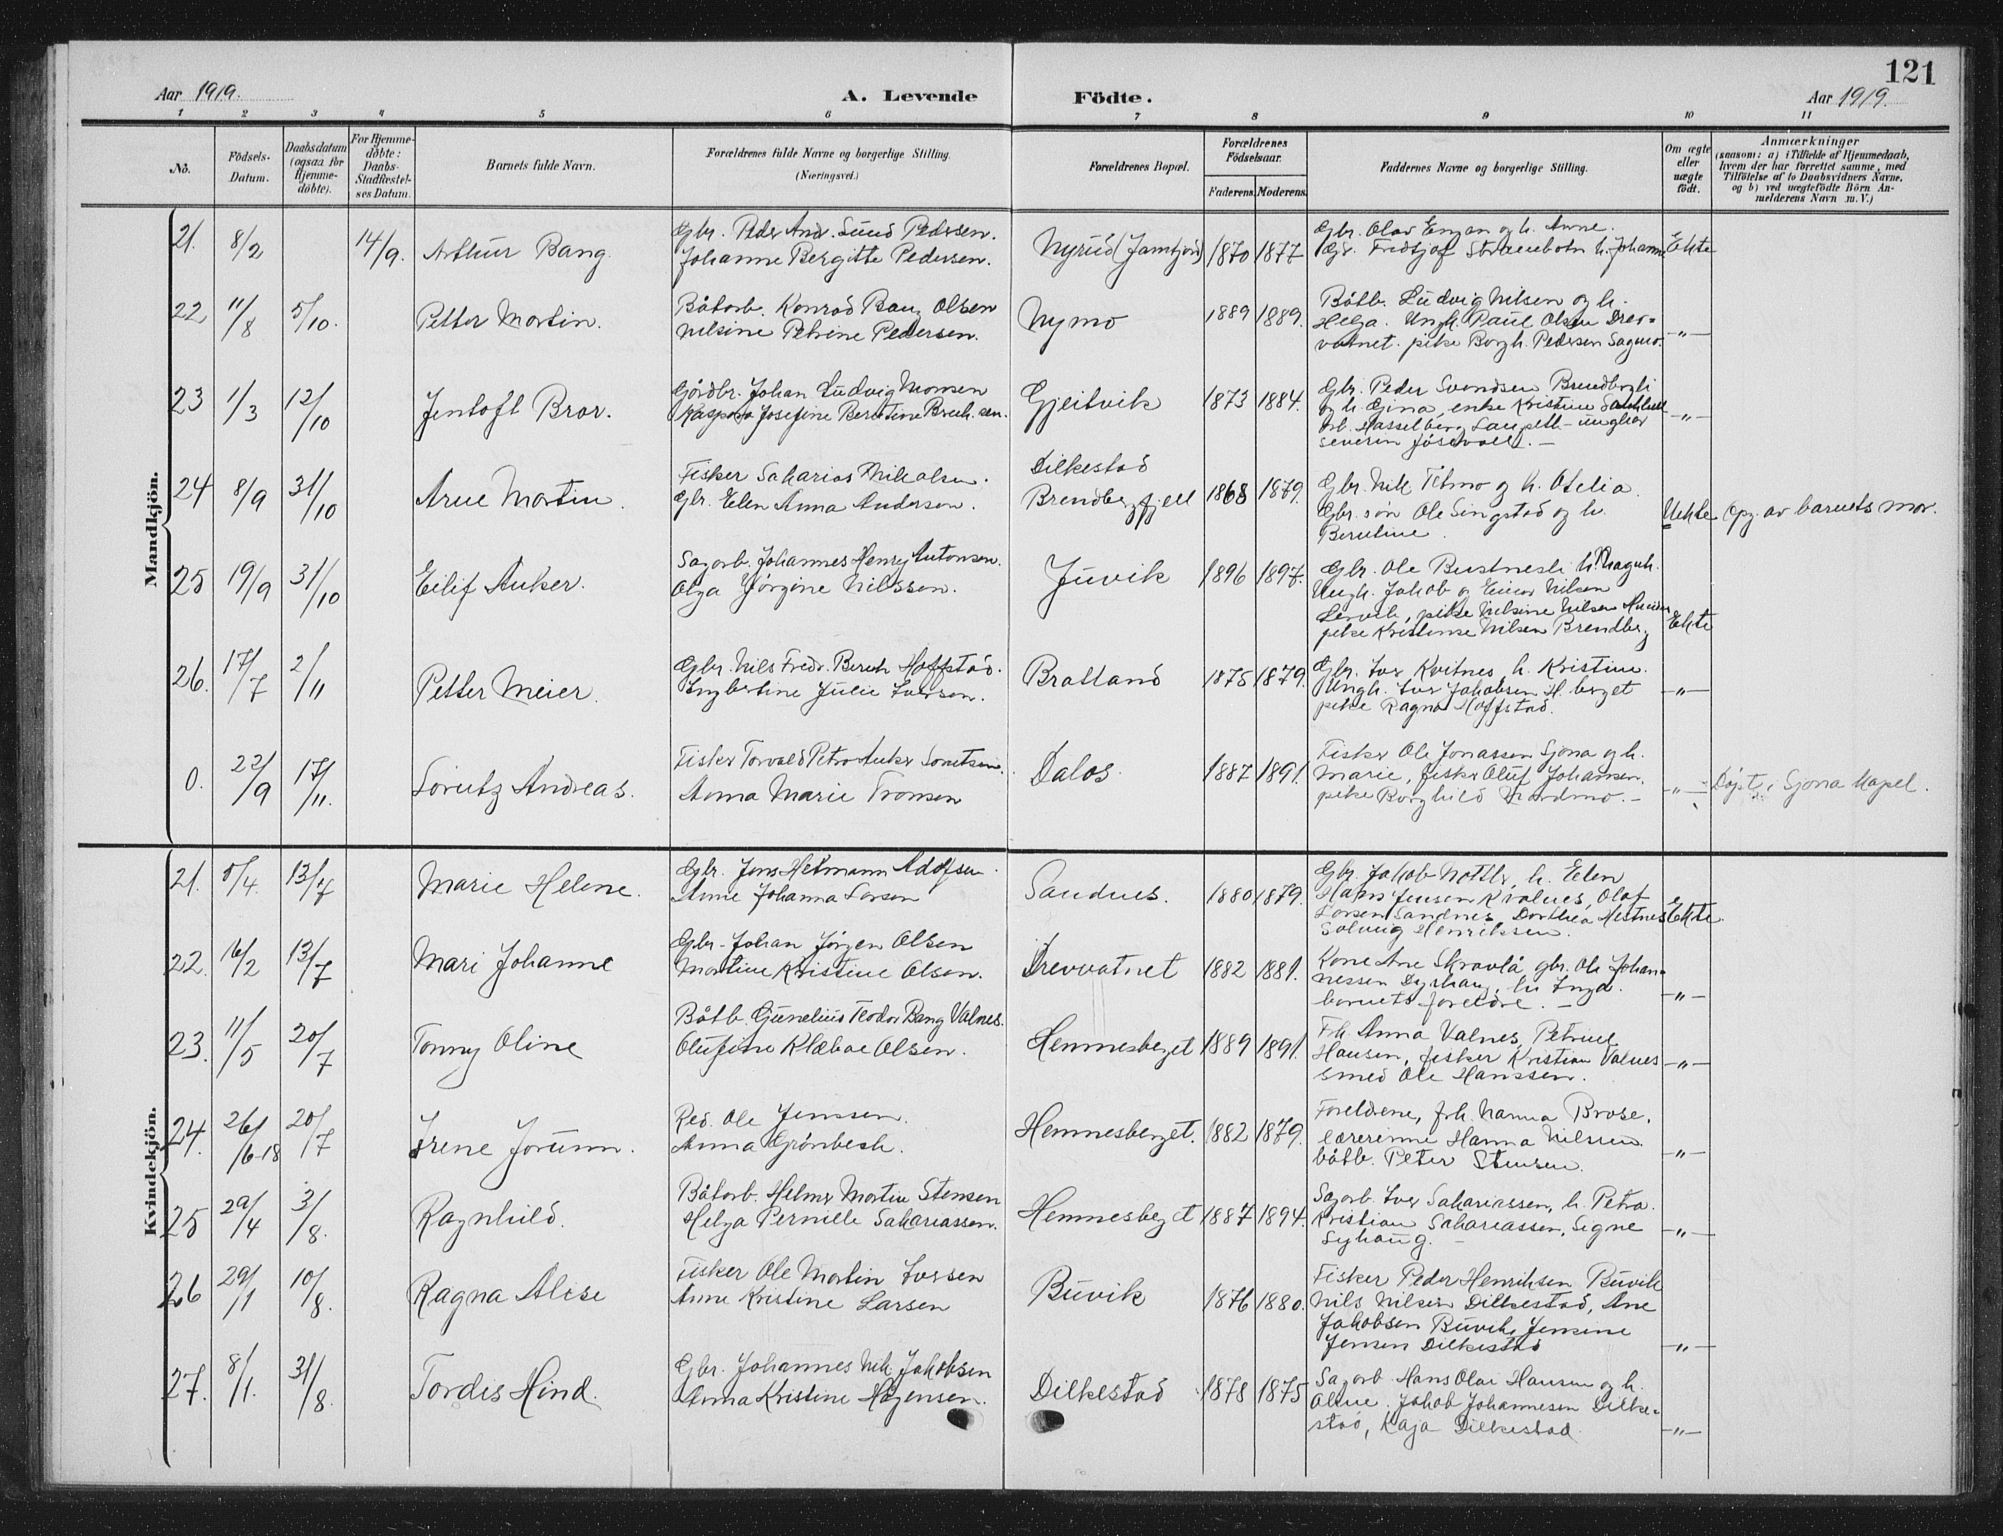 121
Aar 1919. A. Levende Födte. Aar 1919.
1 2 3 4 5 6 7 8 9 10 11
No. Födsels-Datum. Daabsdatum (ogsaa for Hjemme-döbte). For Hjemme-döbte: Daabs-Stadfæstel-ses Datum. Barnets fulde Navn. Forældrenes fulde Navne og borgerlige Stilling. (Næringsvei.) Forældrenes Bopæl. Forældrenes Födselsaar. Faderens. Moderens. Faddernes Navne og borgerlige Stilling. Om ægte eller uægte födt. Anmærkninger (saasom: a) i Tilfælde af Hjemmedaab, hvem der har forrettet samme, med Tilföielse af to Daabsvidners Navne, og b) ved uægtefödte Börn An-melderens Navn m. V.)
Mandkjön.
21. 8/2 14/9. Arthur Bang Gbr. Peder And. Lund Pedersen. Johanne Bergitte Pedersen. Nyrud (Jamtjord) 1870 1877 Gbr. Olav Engan og h. Anne. Gbr. Fridtjof h. Johanne Ekte
22. 11/8 5/10. Petter Martin. Båtarb. Konrad Bang Olsen Nilsine Petrine Pedersen. Nymo 1889 1889. Båtb. Ludvig Nilsen og h. Helga. Ungk. Paul Olsen Drevvatnet. pike Borgh. Pedersen Sagmo. -"-
23 1/3 12/10 Jentoft Bror. Gårdbr. Johan Ludvig Monsen Kaspara Josefine Berntine Gjeitvik 1873 1884. Gbr. Peder Svendsen Brendbergli og h. Gjina, enke Kristine arb. Hasselberg, ungkar Severin -"-
24 8/9 31/10 Arne Martin. Fisker Sakarias Nikolaisen. Gbr. Elen Anna Andersen. Dilkestad Brendbergfjell 1868 1879. Gbr. Nik Tilmo og h. Ofelia. Gbr. søn Ole Singstad og h. Berntine. Uekte Opg. av barnets mor.
25 19/9 31/10 Eilif Anker. Sagarb. Johannes Henry Antonsen. Olga Jørgine Nilssen. Juvik 1896 1897. Gbr. Ole Bustnesli h. Ungk. Jakob og Einar Nilsen pike Nilsine Nilsen pike Kristense Nilsen Brendberg Ekte
26. 17/7 2/11 Petter Meier. Gbr. Nils Fredr. Bernh Hoffstad. Ingbertine Julie Iversen. Bratland 1875 1879. Gbr. Iver Kvitnes h. Kristine. Ungk. Iver Jakobsen H. berget pike Ragna Hoffstad. -"-
0. 22/9 17/11. Lorentz Andreas. Fisker Torvald Petro Anker Lorntsen. Anna Marie Tronsen Dalos 1887 1891. Fisker Ole Jonassen Sjona og h. Marie, fisker Oluf Johansen. pike Borghild Nordmo. -"- Døpt i Sjona Kapel.
Kvindekjön.
21. 5/4. 13/7 Marie Helene. Gbr. Jens Hetmann Adolfsen. Anne Johanna Larsen Sandnes. 1880 1879. Gbr. Jakob h. Elen Hans Jensen Kvalnes, Olaf Larsen Sandnes, Dorthea Solveig Henriksen. Ekte.
22. 16/2 13/7 Mari Johanne Gbr. Johan Jørgen Olsen Martine Kristine Olsen. Drevvatnet 1882 1881. Kone Ane Skravlå, gbr. Ole Johannessen Dyrhaug, barnets foreldre. -"-
23. 11/5 20/7 Tonny Oline Båtb. Gunelius Teodor Bang Valnes. Olufine Klæboe Olsen. Hemnesberget 1889 1891. Frk. Anna Valnes, Petrine Hansen, fisker Kristian Valnes smed Ole Hanssen. -"-
24. 26/6 18 20/7 Irene Jorunn. Red. Ole Jenssen. Anna Grønbech. Hemnesberget. 1882 1879. Foreldrene, frk. Nanna Brose, lærerinne Hanna Nilssen båtb. Peter Stensen. -"-
25 29/4 3/8. Ragnhild. Båtarb. Helmer Martin Stensen Helga Pernille Sakariassen. Hemnesberget 1887 1894. Sagarb. Iver Sakariassen, h. Petra. Kristian Sakariassen, Signe Lyhaug. -"-
26 29/1 10/8. Ragna Alise Fisker Ole Martin Iversen Anne Kristine Larsen Buvik 1876 1880. Fisker Peder Henriksen Buvik Nils Nilsen Dilkestad, Ane Jakobsen Buvik, Jensine Jensen Dilkestad -"-
27. 8/1. 31/8. Tordis Hind. Gbr. Johannes Nik. Jakobsen Anna Kristine Hagensen. Dilkestad 1878 1875 Sagarb Hans Olai Hansen og h. Oline. Jakob Johannesen Dilkestad, Kaja Dilkestad -"-